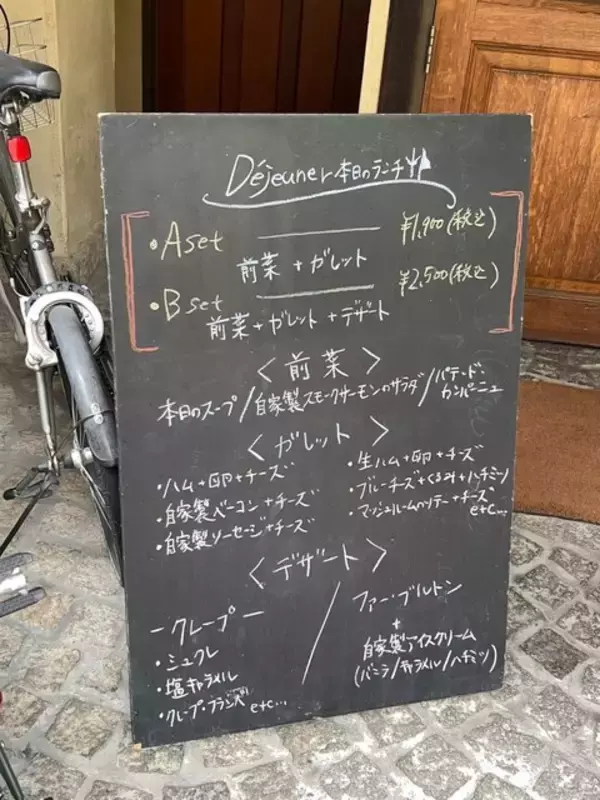 Déjeuner 本日のランチ
・Aset ¥1,900(税込)
前菜 + ガレット
・Bset ¥2,500(税込)
前菜+ガレット+デザート
<前菜>
本日のスープ/自家製スモークサーモンのサラダ/パテ・ド・カンパーニュ
<ガレット>
・ハム+卵+チーズ
・自家製ベーコン+チーズ
・自家製ソーセージ+チーズ
・生ハム+卵+チーズ
・ブルーチーズ+くるみ+ハチミツ
・マッシュルームソテー+チーズ
etc...
<デザート>
ークレープー
・シュクレ
・塩キャラメル
・クレープ・フランベ etc...
ファー・ブルトン
+
自家製アイスクリーム
(バニラ/キャラメル/ハチミツ)